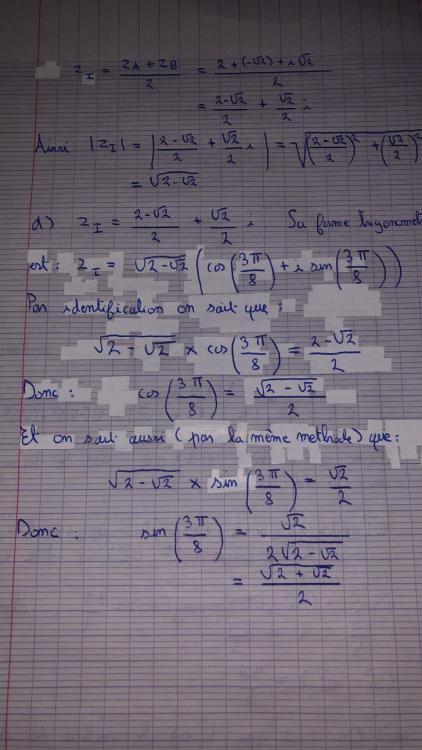 z_I = (z_A + z_B)/2 = (2 + (-√2) + i√2)/2
= (2-√2)/2 + (√2/2) i
Ainsi |z_I| = |(2-√2)/2 + (√2/2) i| = √(((2-√2)/2)² + (√2/2)²)
= √(2-√2)
d) z_I = (2-√2)/2 + (√2/2) i Sa forme trigonomet
est : z_I = √(2-√2) (cos(3π/8) + i sin(3π/8))
Par identification on sait que :
√(2-√2) × cos(3π/8) = (2-√2)/2
Donc : cos(3π/8) = √(2-√2)/2
Et on sait aussi (par la même methode) que :
√(2-√2) × sin(3π/8) = √2/2
Donc : sin(3π/8) = √2/(2√(2-√2))
= √(2+√2)/2